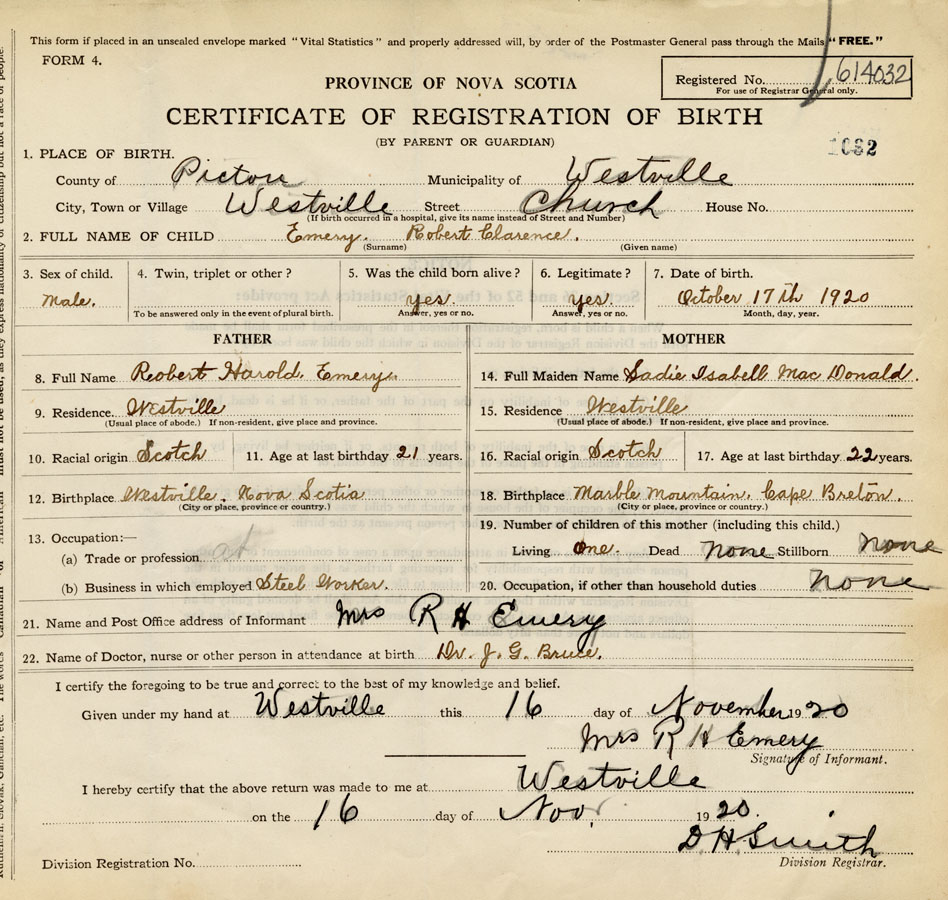 This form if placed in an unsealed envelope marked "Vital Statistics" and properly addressed will, by order of the Postmaster General pass through the Mails "FREE."
FORM 4.
Registered No. 614032
For use of Registrar General only.
PROVINCE OF NOVA SCOTIA
CERTIFICATE OF REGISTRATION OF BIRTH
(BY PARENT OR GUARDIAN)
1. PLACE OF BIRTH.
County of Pictou Municipality of Westville
City, Town or Village Westville Street Church House No.
(If birth occurred in a hospital, give its name instead of Street and Number)
2. FULL NAME OF CHILD Emery. Robert Clarence.
(Surname) (Given name)
3. Sex of child. 4. Twin, triplet or other? 5. Was the child born alive? 6. Legitimate? 7. Date of birth.
Male. yes. yes. October 17th 1920
To be answered only in the event of plural birth. Answer, yes or no. Answer, yes or no. Month, day, year.
FATHER
8. Full Name Robert Harold. Emery.
9. Residence. Westville
(Usual place of abode.) If non-resident, give place and province.
10. Racial origin Scotch 11. Age at last birthday 21 years.
12. Birthplace Westville. Nova Scotia
(City or place, province or country.)
13. Occupation:—
(a) Trade or profession
(b) Business in which employed Steel Worker.
MOTHER
14. Full Maiden Name Sadie Isabell Mac Donald.
15. Residence Westville
(Usual place of abode.) If non-resident, give place and province.
16. Racial origin Scotch 17. Age at last birthday 22 years.
18. Birthplace Marble Mountain. Cape Breton.
(City or place, province or country.)
19. Number of children of this mother (including this child.)
Living one. Dead none Stillborn none
20. Occupation, if other than household duties none
21. Name and Post Office address of Informant Mrs R H Emery
22. Name of Doctor, nurse or other person in attendance at birth Dr. J. G. Bruce.
I certify the foregoing to be true and correct to the best of my knowledge and belief.
Given under my hand at Westville this 16 day of November 1920
Mrs R H Emery
Signature of Informant.
I hereby certify that the above return was made to me at Westville
on the 16 day of Nov. 1920.
D H Smith
Division Registrar.
Division Registration No.